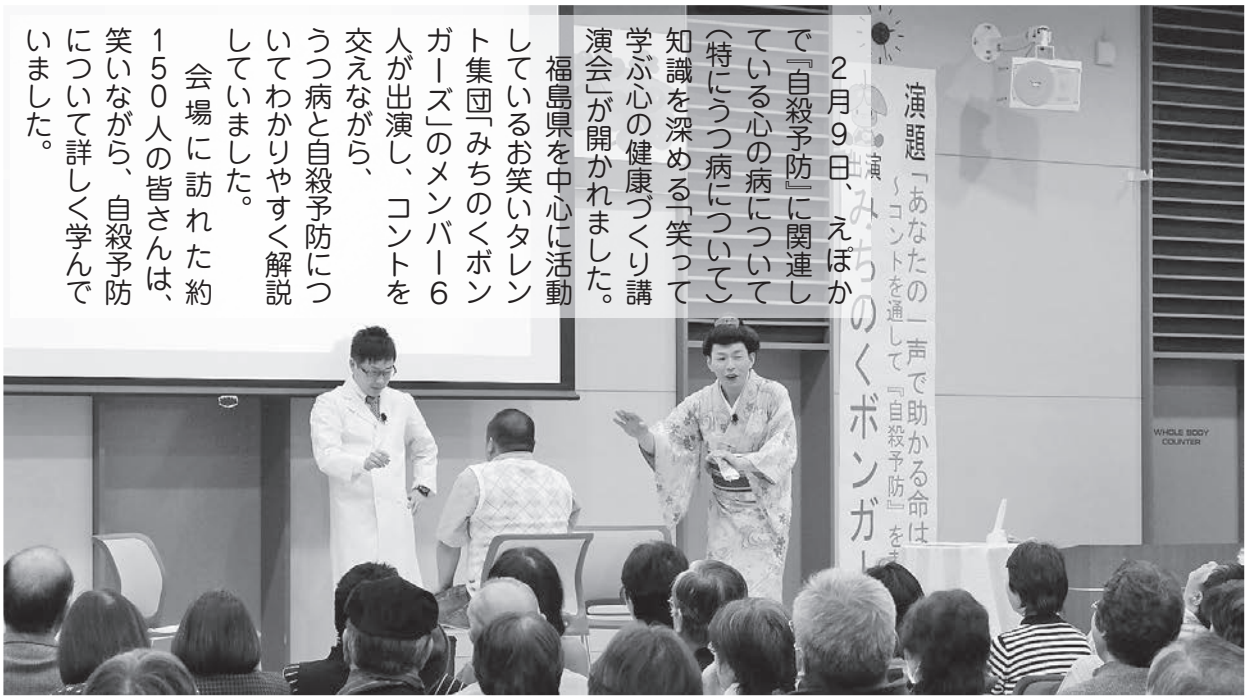 ２月９日、えぽか
で『自殺予防』に関連し
ている心の病について
（特にうつ病について）
知識を深める「笑って
学ぶ心の健康づくり講
演会」が開かれました。
福島県を中心に活動
しているお笑いタレン
ト集団「みちのくボン
ガーズ」のメンバー６
人が出演し、コントを
交えながら、
うつ病と自殺予防につ
いてわかりやすく解説
していました。
会場に訪れた約
１５０人の皆さんは、
笑いながら、自殺予防
について詳しく学んで
いました。
演題「あなたの一声で助かる命は
～コントを通して『自殺予防』をま
出演 みちのくボンガー
WHOLE BODY
COUNTER